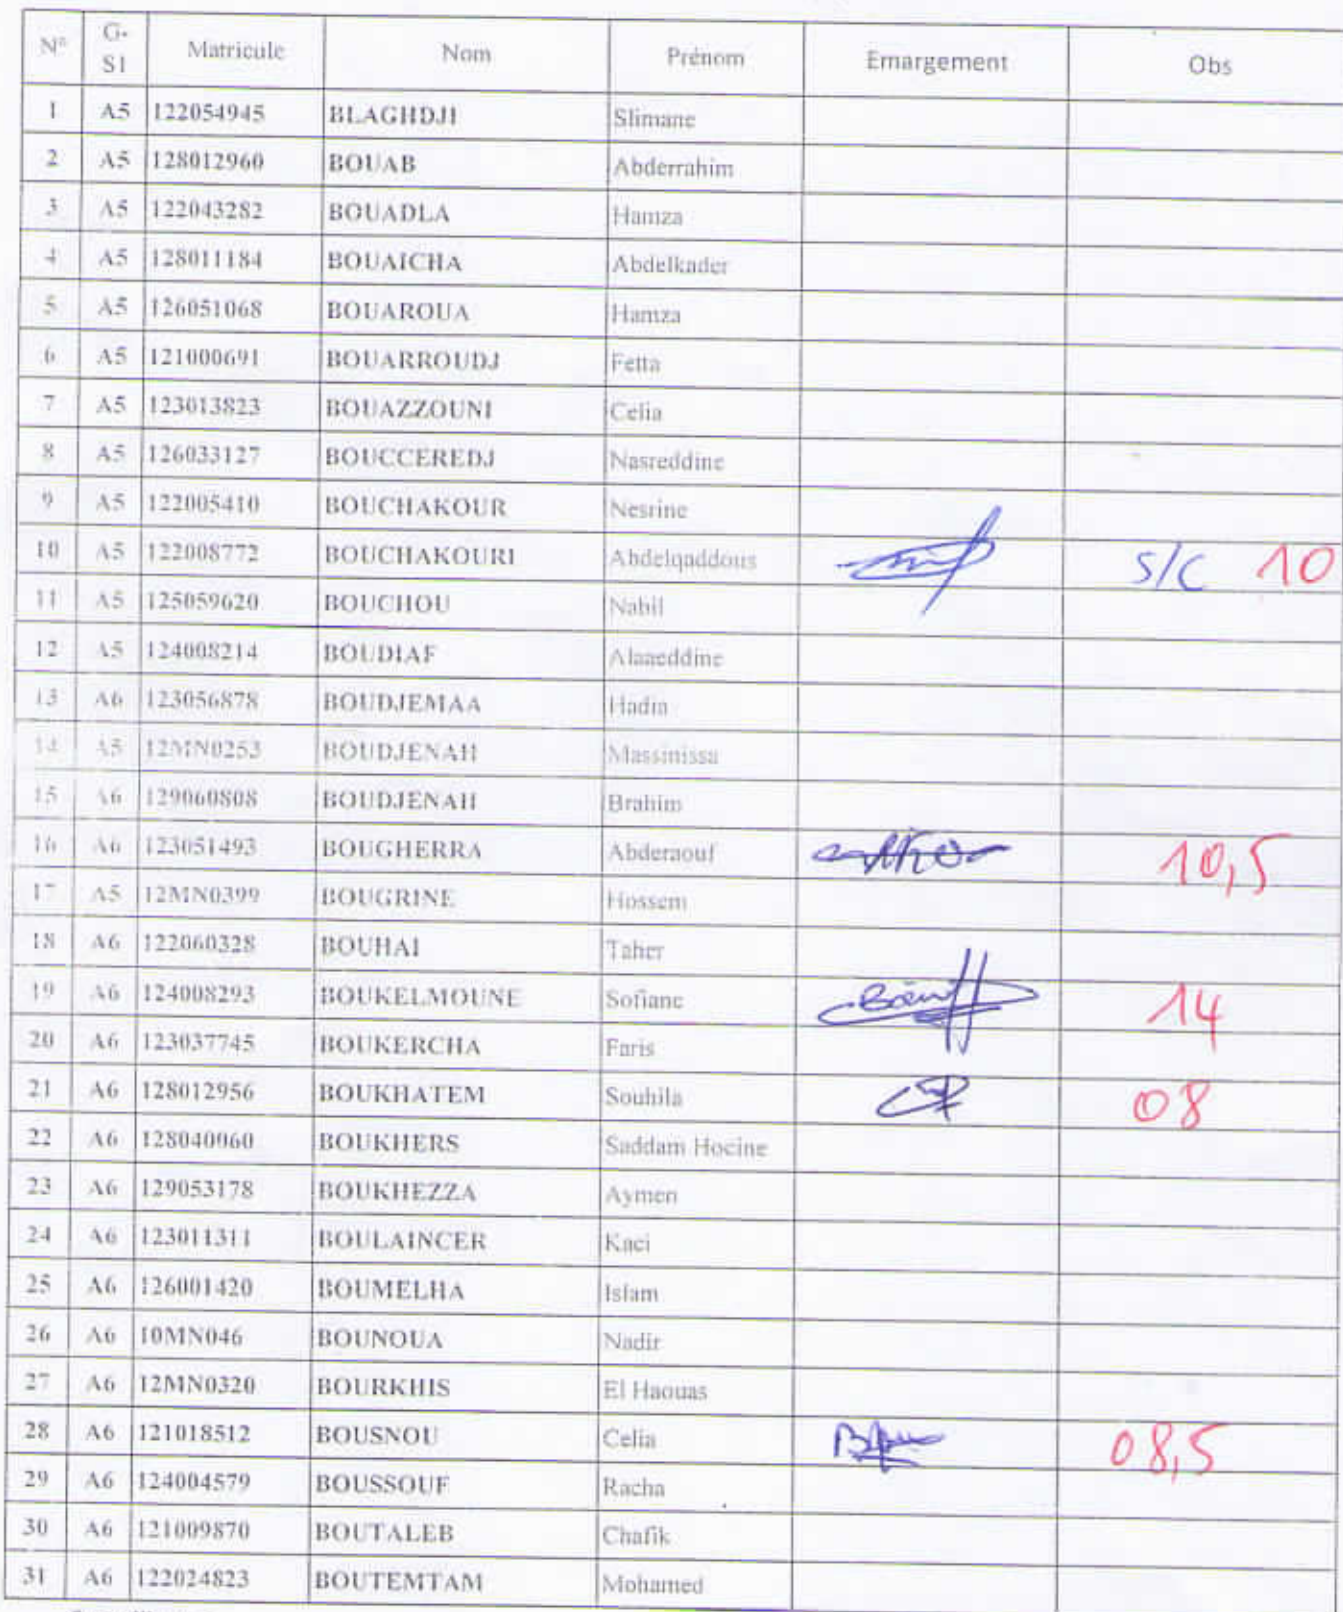 N° G-S1 Matricule Nom Prénom Emargement Obs
1 A5 122054945 BLAGHDJI Slimane
2 A5 128012960 BOUAB Abderrahim
3 A5 122043282 BOUADLA Hamza
4 A5 128011184 BOUAICHA Abdelkader
5 A5 126051068 BOUAROUA Hamza
6 A5 121000691 BOUARROUDJ Fetta
7 A5 123013823 BOUAZZOUNI Celia
8 A5 126033127 BOUCCEREDJ Nasreddine
9 A5 122005410 BOUCHAKOUR Nesrine
10 A5 122008772 BOUCHAKOURI Abdelqaddous S/C 10
11 A5 125059620 BOUCHOU Nabil
12 A5 124008214 BOUDIAF Alaaeddine
13 A6 123056878 BOUDJEMAA Hadia
14 A5 12MN0253 BOUDJENAH Massinissa
15 A6 129060808 BOUDJENAH Brahim
16 A6 123051493 BOUGHERRA Abderaouf 10,5
17 A5 12MN0399 BOUGRINE Hossem
18 A6 122060328 BOUHAI Taher
19 A6 124008293 BOUKELMOUNE Sofiane 14
20 A6 123037745 BOUKERCHA Faris
21 A6 128012956 BOUKHATEM Souhila 08
22 A6 128040060 BOUKHERS Saddam Hocine
23 A6 129053178 BOUKHEZZA Aymen
24 A6 123011311 BOULAINCER Kaci
25 A6 126001420 BOUMELHA Islam
26 A6 10MN046 BOUNOUA Nadir
27 A6 12MN0320 BOURKHIS El Haouas
28 A6 121018512 BOUSNOU Celia 08,5
29 A6 124004579 BOUSSOUF Racha
30 A6 121009870 BOUTALEB Chafik
31 A6 122024823 BOUTEMTAM Mohamed